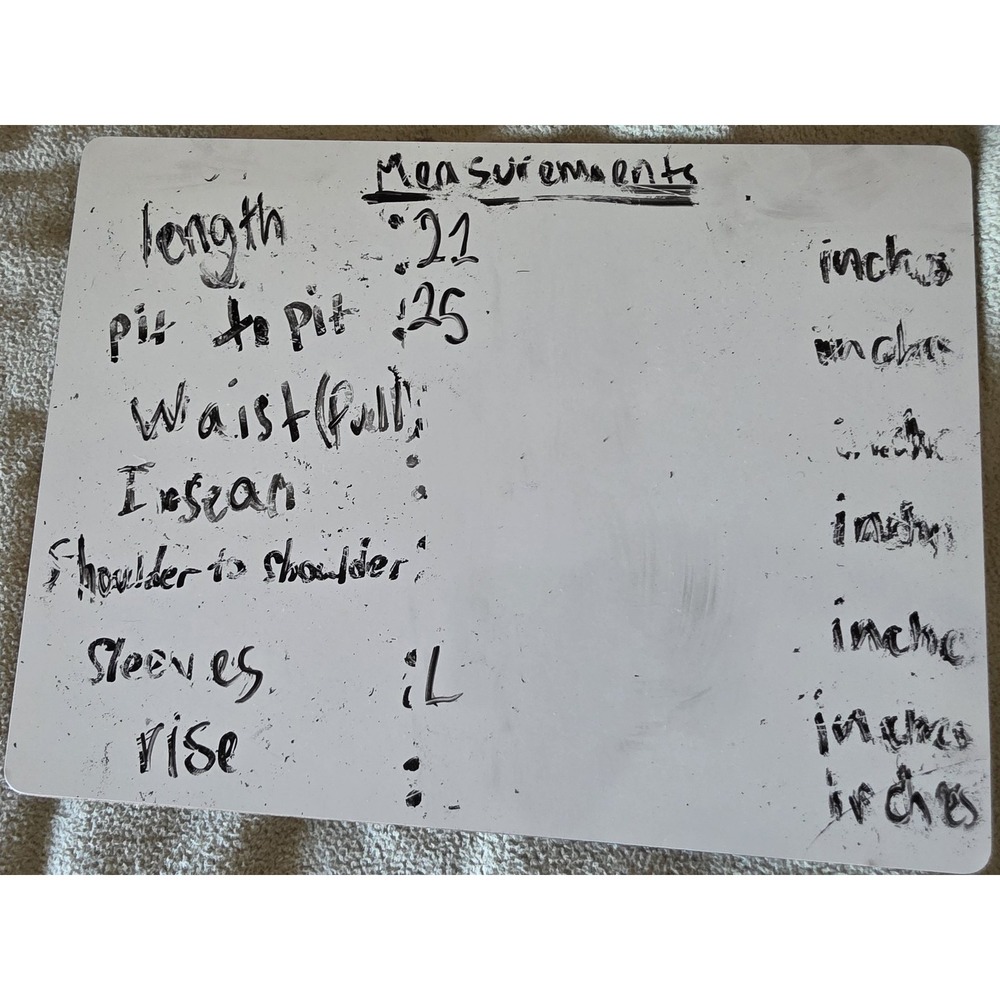 Measurements
length : 21 inches
pit to pit : 25 inches
Waist (full) : inches
Inseam : inches
Shoulder to shoulder : inches
Sleeves : L inches
rise : - inches